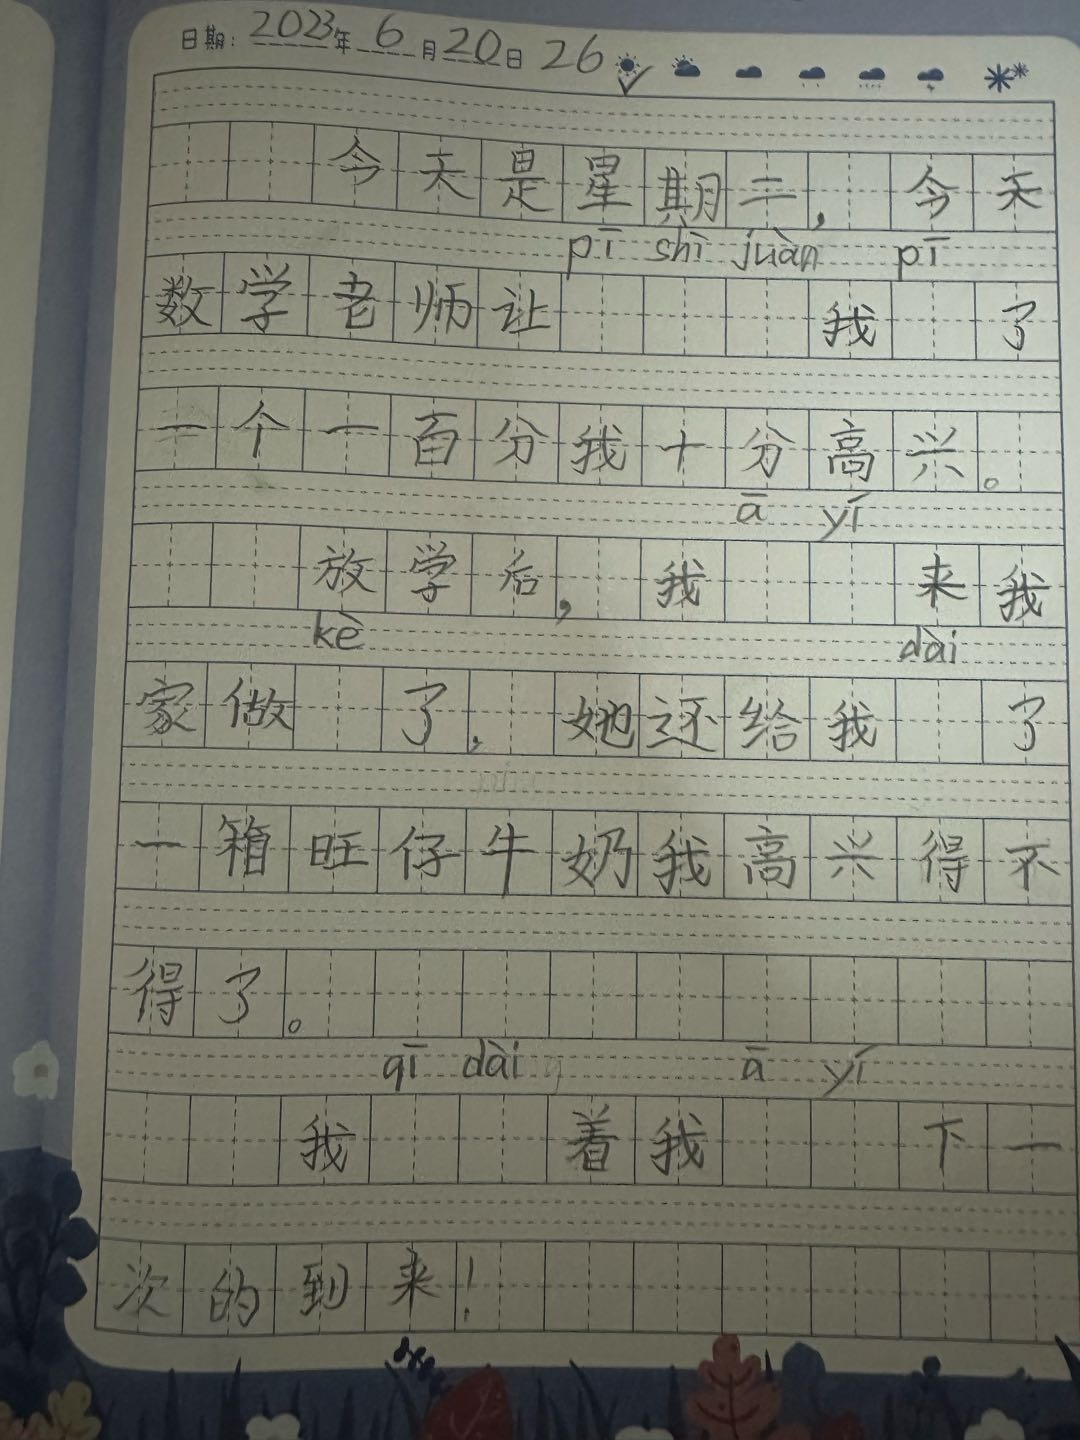 日期：2023年6月20日 26
今天是星期二，今天
pī shì juàn pī
数学老师让 我 了
一个一百分我十分高兴。
ā yí
放学后，我 来我
kè dài
家做 了，她还给我 了
一箱旺仔牛奶我高兴得不
得了。
qī dài ā yí
我 着我 下一
次的到来！